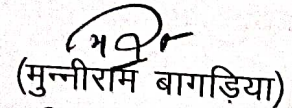 (मुन्नीराम बागड़िया)